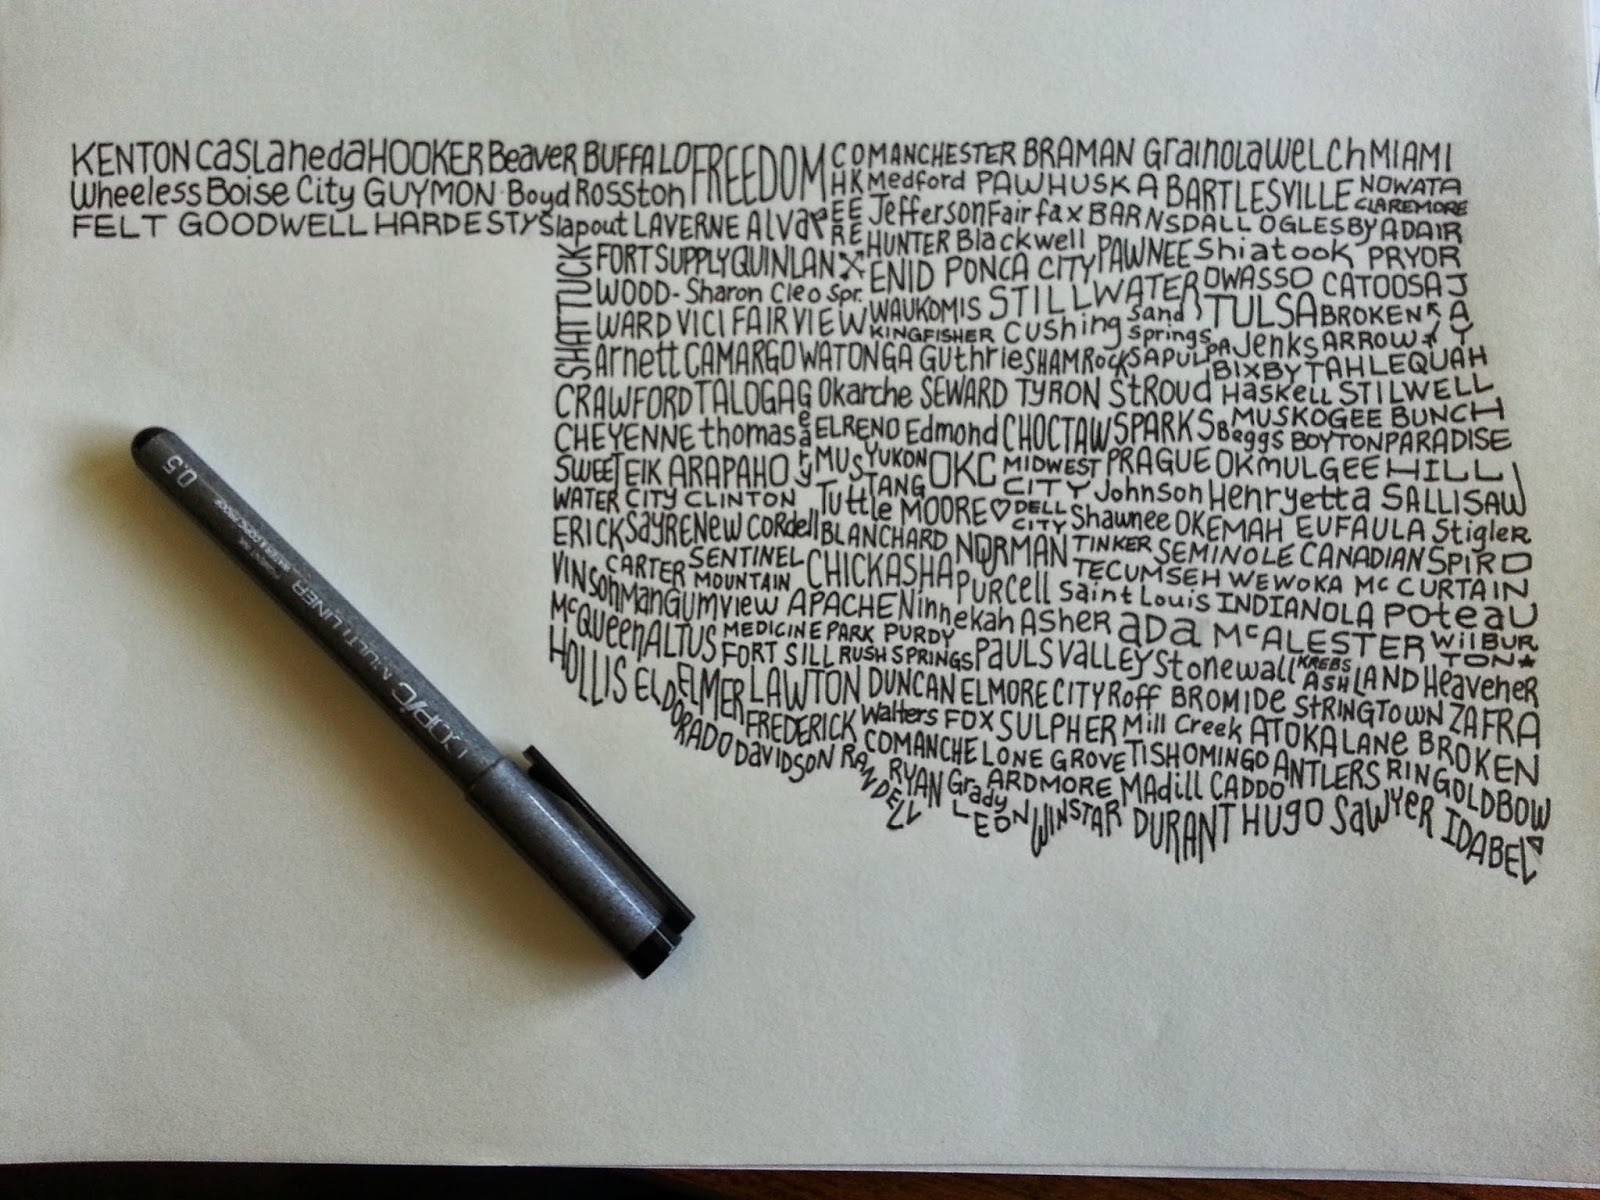 KENTON CasLanedaHOOKER Beaver BUFFALO FREEDOM COMANCHESTER BRAMAN GrainolaWELCh MIAMI
Wheeless Boise City GUYMON · Boyd Rosston HK Medford PAWHUSKA BARTLESVILLE NOWATA
CLAREMORE
FELT GOODWELL HARDESTY Slapout LAVERNE Alva EE JeffersonFairfax BARNSDALL OGLESBY ADAIR
RE HUNTER Blackwell PAWNEE Shiatook PRYOR
SHATTUCK FORT SUPPLY QUINLAN ENID PONCA CITY OWASSO CATOOSA JAY
WOOD- Sharon Cleo Spr. WAUKOMIS STILLWATER Sand TULSA BROKEN
WARD VICI FAIRVIEW KINGFISHER Cushing Springs Jenks ARROW
Arnett CAMARGO WATONGA Guthrie SHAMRock SAPULPA BIXBY TAHLEQUAH
CRAWFORD TALOGA Geary Okarche SEWARD TYRON StRoud Haskell STILWELL
CHEYENNE thomas ELRENO Edmond CHOCTAW SPARKS Beggs MUSKOGEE BUNCH
BOYTON PARADISE HILL
SWEET EIK ARAPAHO MUSTANG YUKON OKC MIDWEST PRAGUE OKMULGEE
WATER CITY CLINTON Tuttle MOORE♡ CITY Johnson Henryetta SALLISAW
ERICK SayRE New CORdell BLANCHARD DELL CITY Shawnee OKEMAH EUFAULA Stigler
VINSon CARTER SENTINEL CHICKASHA NORMAN TINKER SEMINOLE CANADIAN SPIRO
ManGum MOUNTAIN view PURCell TECUMSEH WEWOKA McCURTAIN
McQueen ALTUS APACHE Ninnekah Asher Saint Louis INDIANOLA POteaU
MEDICINE PARK PURDY ADA McALESTER WilBURTON
HOLLIS ELDORADO ELMER FORT SILL RUSH SPRINGS PAULS VALLEY Stonewall KREBS ASHLAND Heavener
LAWTON DUNCAN ELMORE CITY Roff BROMIDE StRINGTOWN ZAFRA
FREDERICK Walters FOX SULPHER Mill Creek ATOKA LANE BROKEN BOW
Davidson RANDELL COMANCHE LONE GROVE TISHOMINGO ANTLERS RINGOLD
RYAN Grady ARDMORE MAdill CADDO
LEON WINSTAR DURANT HUGO SaWyER IDABEL
0.5
COPIC MULTI LINER